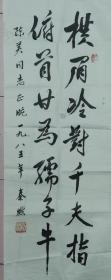 横眉冷对千夫指
俯首甘为孺子牛
陈美同志正腕一九八五年秦㷱